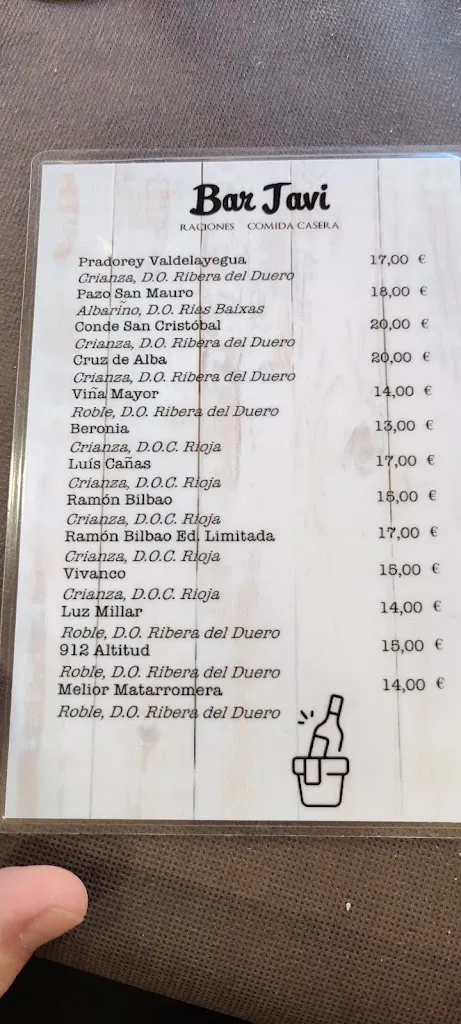 Bar Javi
RACIONES COMIDA CASERA
Pradorey Valdelayegua 17,00 €
Crianza, D.O. Ribera del Duero
Pazo San Mauro 18,00 €
Albariño, D.O. Rias Baixas
Conde San Cristóbal 20,00 €
Crianza, D.O. Ribera del Duero
Cruz de Alba 20,00 €
Crianza, D.O. Ribera del Duero
Viña Mayor 14,00 €
Roble, D.O. Ribera del Duero
Beronia 13,00 €
Crianza, D.O.C. Rioja
Luís Cañas 17,00 €
Crianza, D.O.C. Rioja
Ramón Bilbao 15,00 €
Crianza, D.O.C. Rioja
Ramón Bilbao Ed. Limitada 17,00 €
Crianza, D.O.C. Rioja
Vivanco 15,00 €
Crianza, D.O.C. Rioja
Luz Millar 14,00 €
Roble, D.O. Ribera del Duero
912 Altitud 15,00 €
Roble, D.O. Ribera del Duero
Melior Matarromera 14,00 €
Roble, D.O. Ribera del Duero